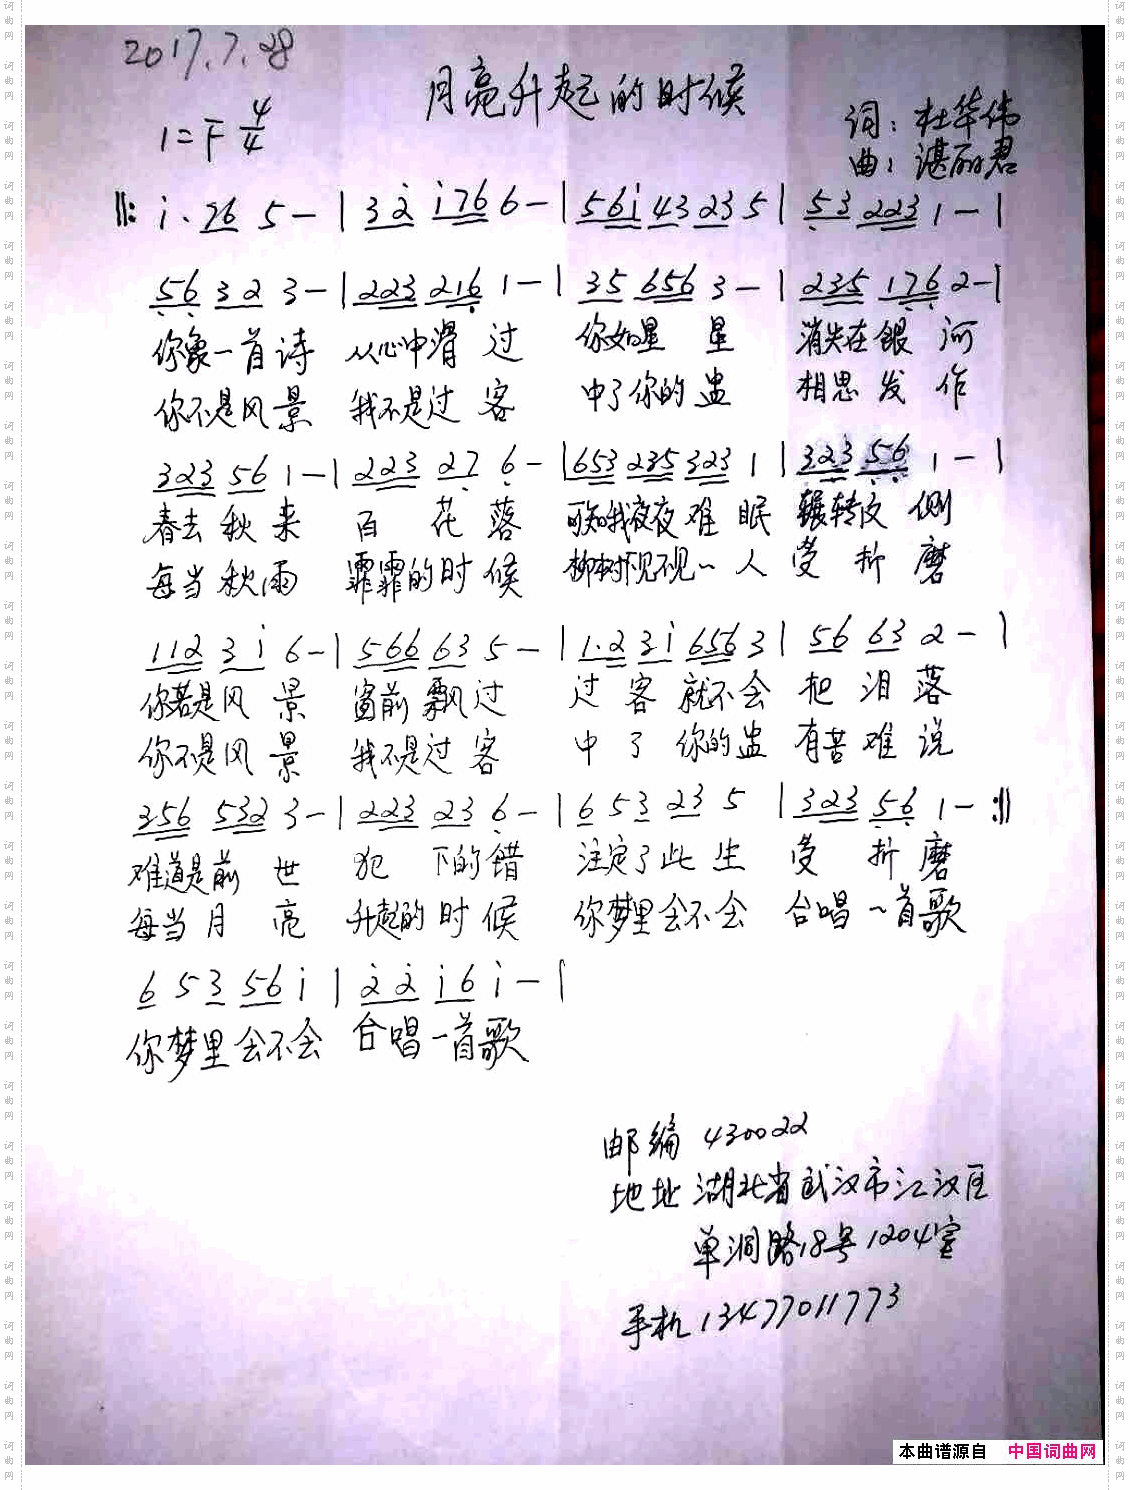 2017.7.28
月亮升起的时候
1=F 4/4
词：杜华伟
曲：谌丽君
‖: i·76 5－| 32 i76 6－| 56i 43 23 5 | 53 223 1－|
56 32 3－| 223 216 1－| 35 656 3－| 235 176 2－|
你象一首诗 从心中滑过 你如星星 消失在銀河
你不是风景 我不是过客 中了你的蛊 相思发作
323 56 1－| 223 27 6－| 653 235 323 1 | 323 56 1－|
春去秋来 百花落 可知我夜夜难眠 辗转反侧
每当秋雨 霏霏的时候 柳树下见不见一人受折磨
112 3i 6－| 566 63 5－| 1·2 3i 656 3 | 56 63 2－|
你若是风景 窗前飘过 过客就不会 把泪落
你不是风景 我不是过客 中了你的蛊 有苦难说
356 532 3－| 223 23 6－| 6 53 23 5 | 323 56 1－:‖
难道是前世 犯下的错 注定了此生 受折磨
每当月亮 升起的时候 你梦里会不会 合唱一首歌
6 53 56 i | 2 2 i6 i－|
你梦里会不会 合唱一首歌
邮编 430022
地址 湖北省武汉市江汉区
单洞路18号1204室
手机 13477011773
本曲谱源自 中国词曲网